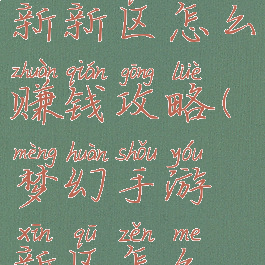 新新区怎么
zhuàn qián gōng lüè
赚钱攻略(
mèng huàn shǒu yóu
梦幻手游
xīn qū zěn me
新区怎么